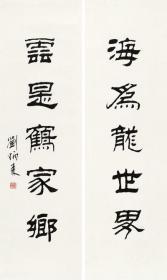 海為龍世界
雲是鶴家鄉
劉炳森